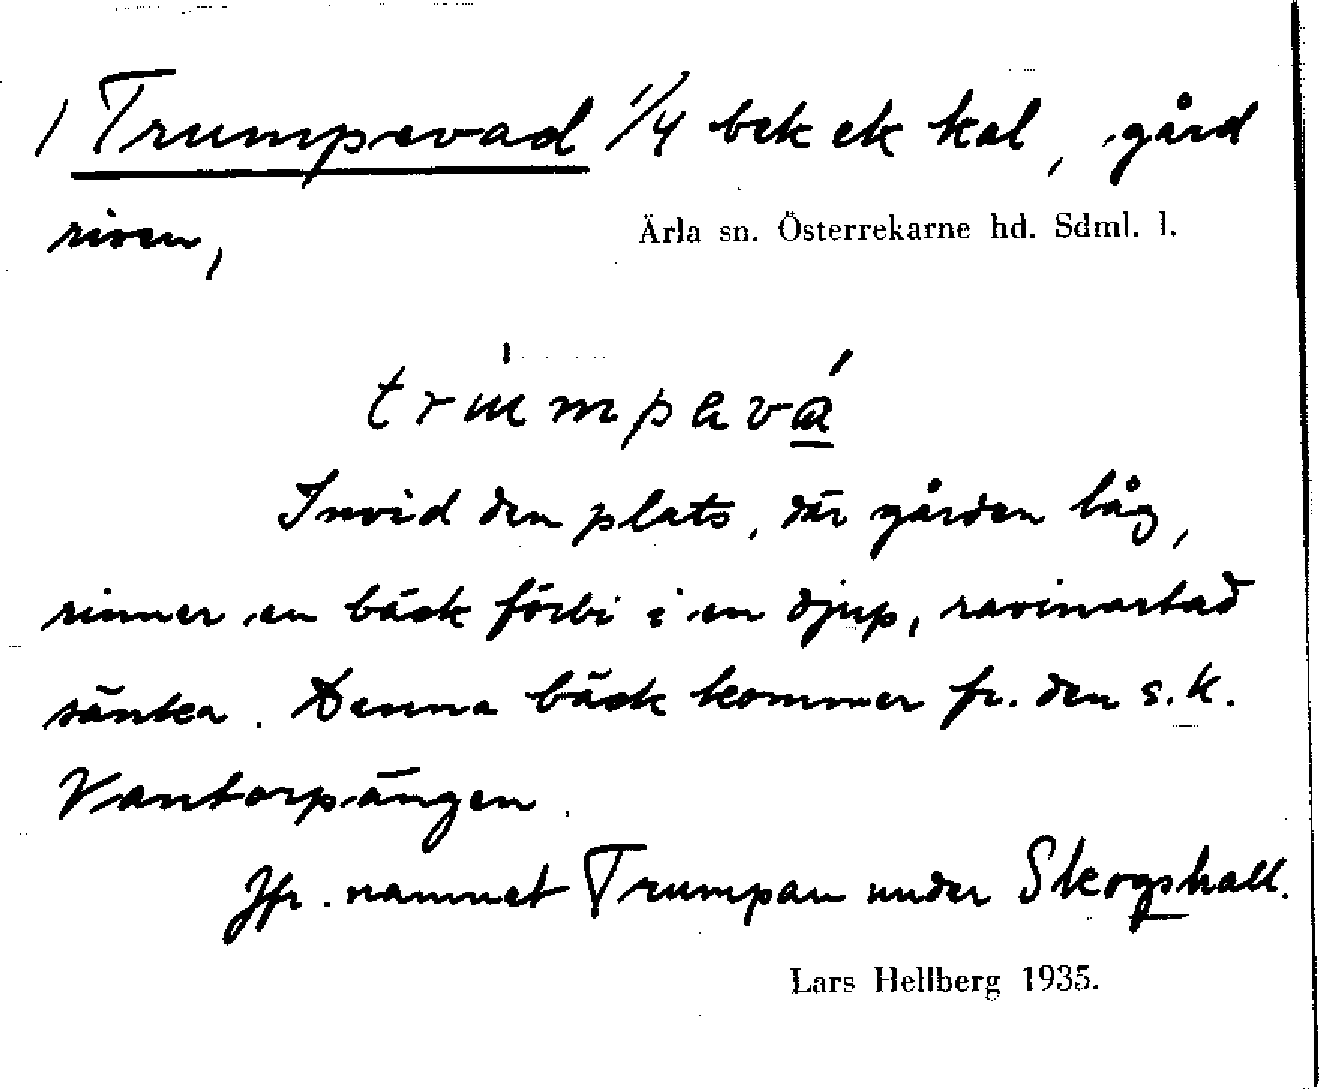 1 Trumpevad 1/4 bek ek kal, gård
riven,
Ärla sn. Österrekarne hd. Sdml. l.
Invid den plats, där gården låg,
rinner en bäck förbi i en djup, ravinartad
sänka. Denna bäck kommer fr. den s.k.
Vantorpängen.
Jfr. namnet Trumpan under Skogshall.
Lars Hellberg 1935.